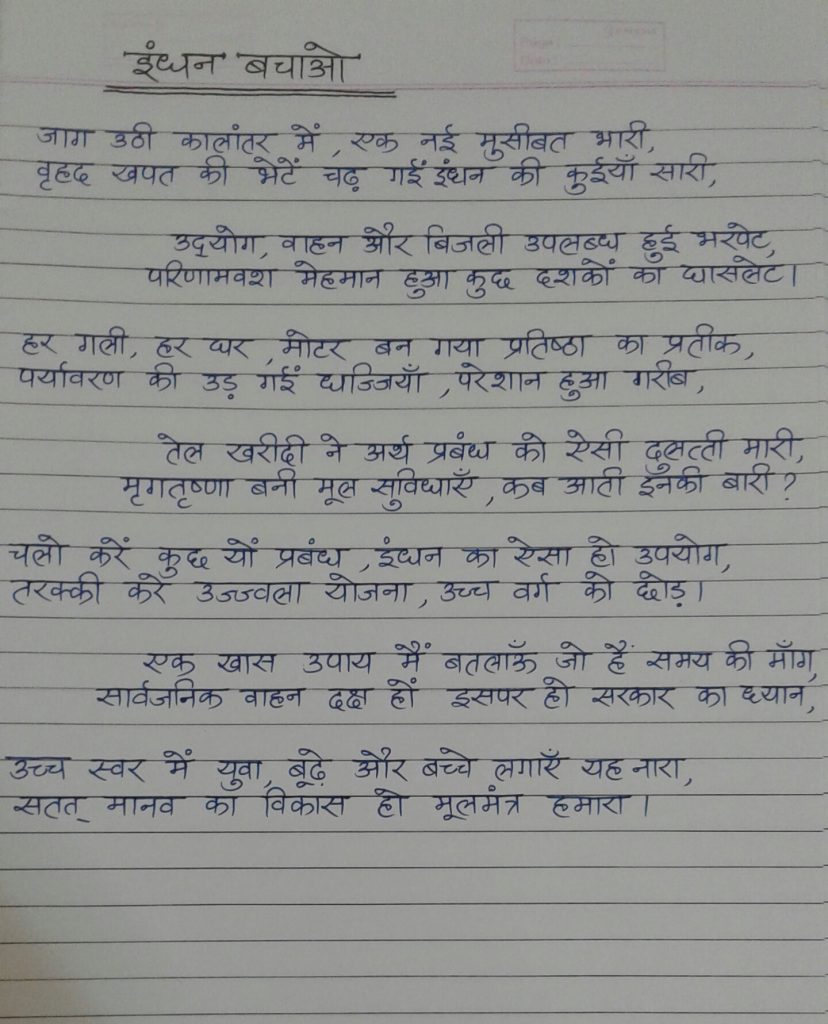 इंधन बचाओ
जाग उठी कालांतर में, एक नई मुसीबत भारी,
वृहद खपत की भेटें चढ़ गईं इंधन की कुईयाँ सारी,
उद्योग, वाहन और बिजली उपलब्ध हुई भरपेट,
परिणामवश मेहमान हुआ कुछ दशकों का घासलेट।
हर गली, हर घर, मोटर बन गया प्रतिष्ठा का प्रतीक,
पर्यावरण की उड़ गईं धज्जियाँ, परेशान हुआ गरीब,
तेल खरीदी ने अर्थ प्रबंध को ऐसी दुलत्ती मारी,
मृगतृष्णा बनी मूल सुविधाएँ, कब आती इनकी बारी?
चलो करें कुछ यों प्रबंध, इंधन का ऐसा हो उपयोग,
तरक्की करे उज्ज्वला योजना, उच्च वर्ग को छोड़।
एक खास उपाय मैं बतलाऊँ जो हैं समय की माँग,
सार्वजनिक वाहन दक्ष हों इसपर हो सरकार का ध्यान,
उच्च स्वर में युवा, बूढ़े और बच्चे लगाएँ यह नारा,
सतत् मानव का विकास हो मूलमंत्र हमारा।